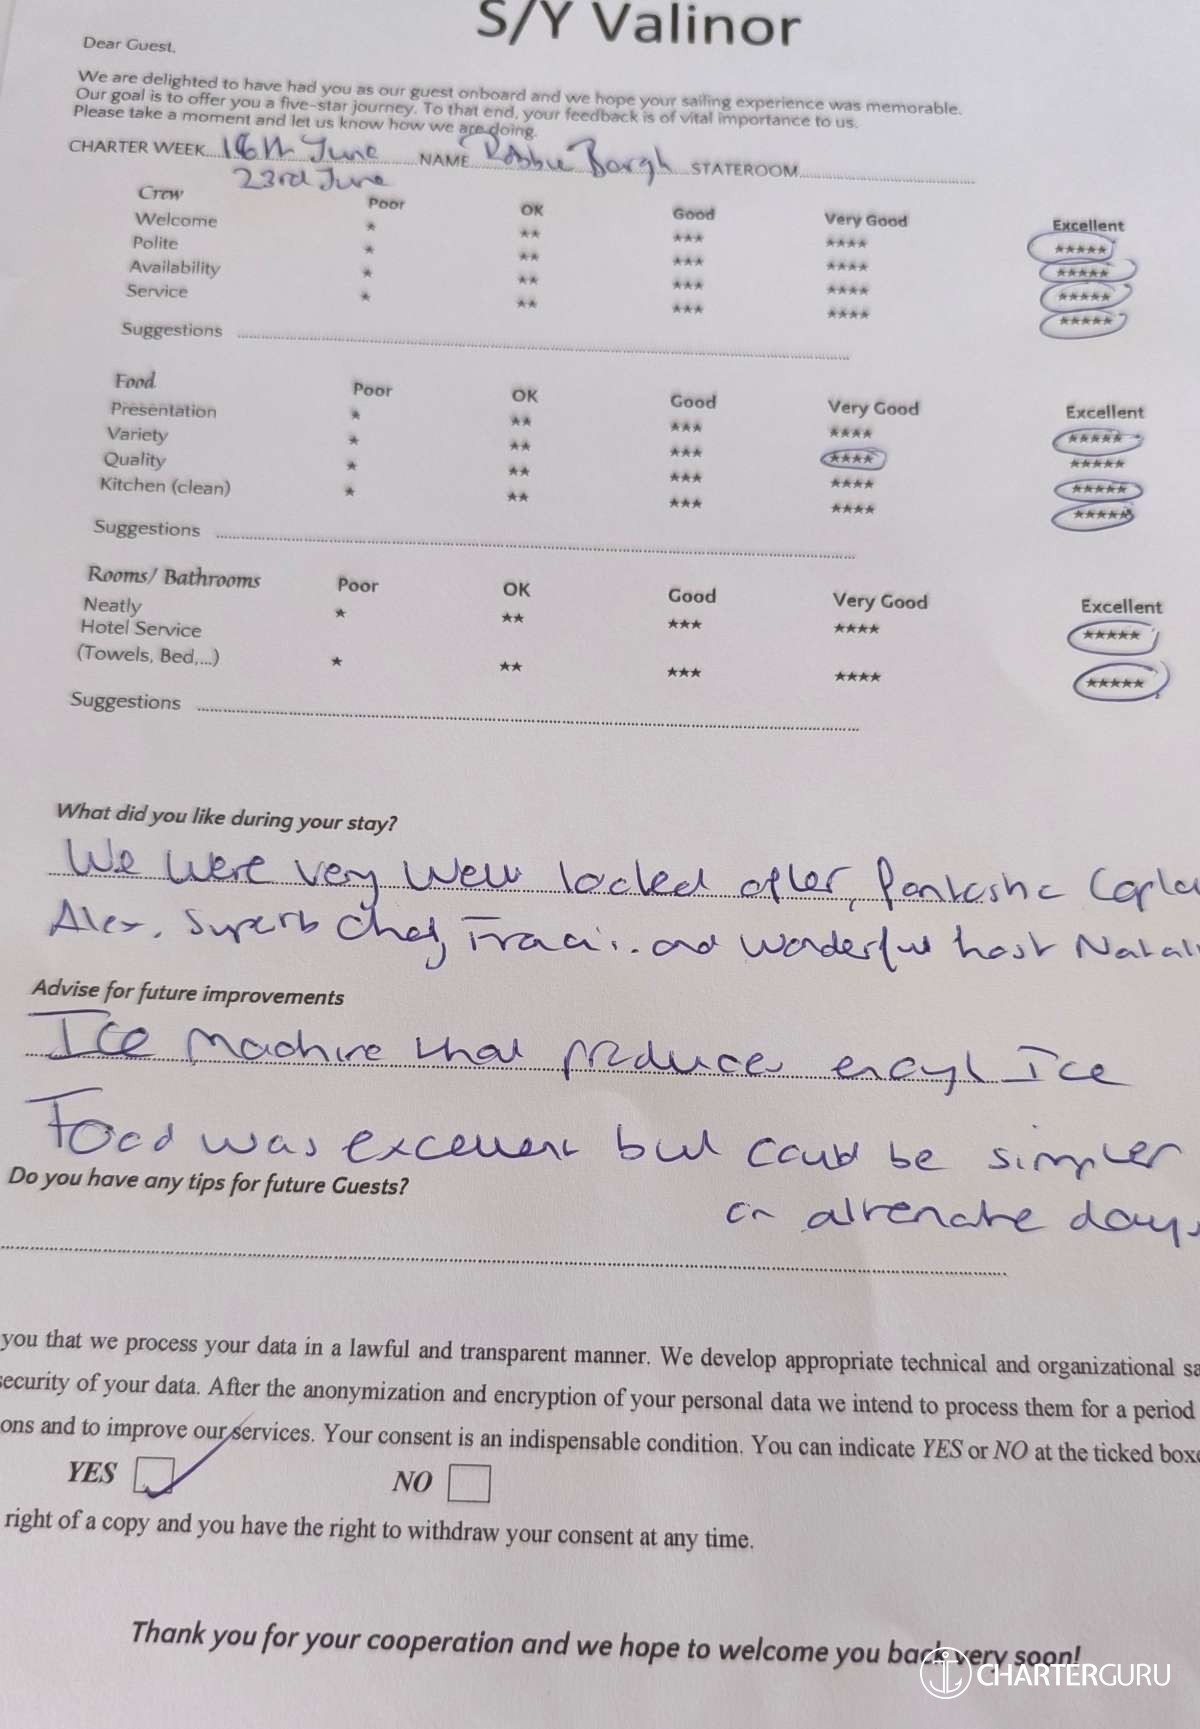 S/Y Valinor
Dear Guest,
We are delighted to have had you as our guest onboard and we hope your sailing experience was memorable.
Our goal is to offer you a five-star journey. To that end, your feedback is of vital importance to us.
Please take a moment and let us know how we are doing.
CHARTER WEEK 16th June NAME Robbie Borgh STATEROOM
23rd June
Crew Poor OK Good Very Good Excellent
Welcome * ** *** **** *****
Polite * ** *** **** *****
Availability * ** *** **** *****
Service * ** *** **** *****
Suggestions
Food Poor OK Good Very Good Excellent
Presentation * ** *** **** *****
Variety * ** *** **** *****
Quality * ** *** **** *****
Kitchen (clean) * ** *** **** *****
Suggestions
Rooms/ Bathrooms Poor OK Good Very Good Excellent
Neatly * ** *** **** *****
Hotel Service
(Towels, Bed,...) * ** *** **** *****
Suggestions
What did you like during your stay?
We were very well looked after, fantastic Capta
Alex, Superb Chef, and wonderful host Natali
Advise for future improvements
Ice machine that produces enough Ice
Food was excellent but could be simpler
on alternate days
Do you have any tips for future Guests?
you that we process your data in a lawful and transparent manner. We develop appropriate technical and organizational sa
security of your data. After the anonymization and encryption of your personal data we intend to process them for a period
ons and to improve our services. Your consent is an indispensable condition. You can indicate YES or NO at the ticked boxe
YES NO
right of a copy and you have the right to withdraw your consent at any time.
Thank you for your cooperation and we hope to welcome you back very soon!
CHARTERGURU